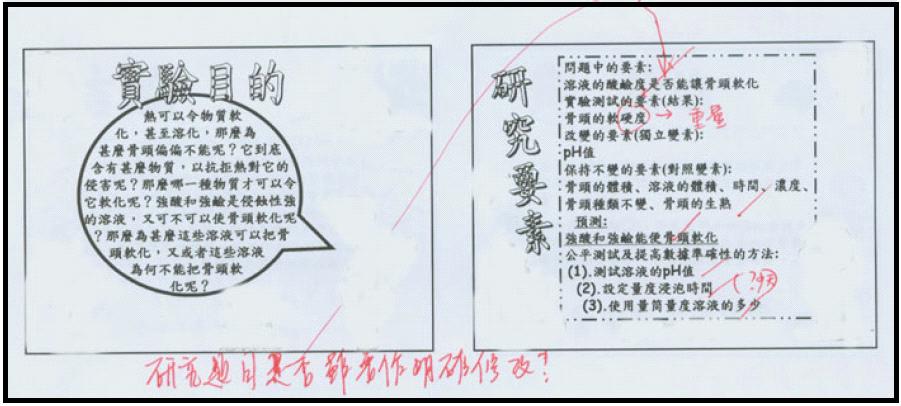 實驗目的
熱可以令物質軟
化，甚至溶化，那麼為
甚麼骨頭偏偏不能呢？它到底
含有甚麼物質，以抗拒熱對它的
侵害呢？那麼哪一種物質才可以令
它軟化呢？強酸和強鹼是侵蝕性強
的溶液，又可不可以使骨頭軟化呢
？那麼為甚麼這些溶液可以把骨
頭軟化，又或者這些溶液
為何不能把骨頭軟
化呢？
研究要素
問題中的要素：
溶液的酸鹼度是否能讓骨頭軟化
實驗測試的要素(結果)：
骨頭的軟硬度 → 重量
改變的要素(獨立變素)：
pH值
保持不變的要素(對照變素)：
骨頭的體積、溶液的體積、時間、濃度、
骨頭種類不變、骨頭的生熟
預測：
強酸和強鹼能使骨頭軟化
公平測試及提高數據準確性的方法：
(1).測試溶液的pH值
(2).設定量度浸泡時間
(3).使用量筒量度溶液的多少
研究題目是否都者作明確修改！